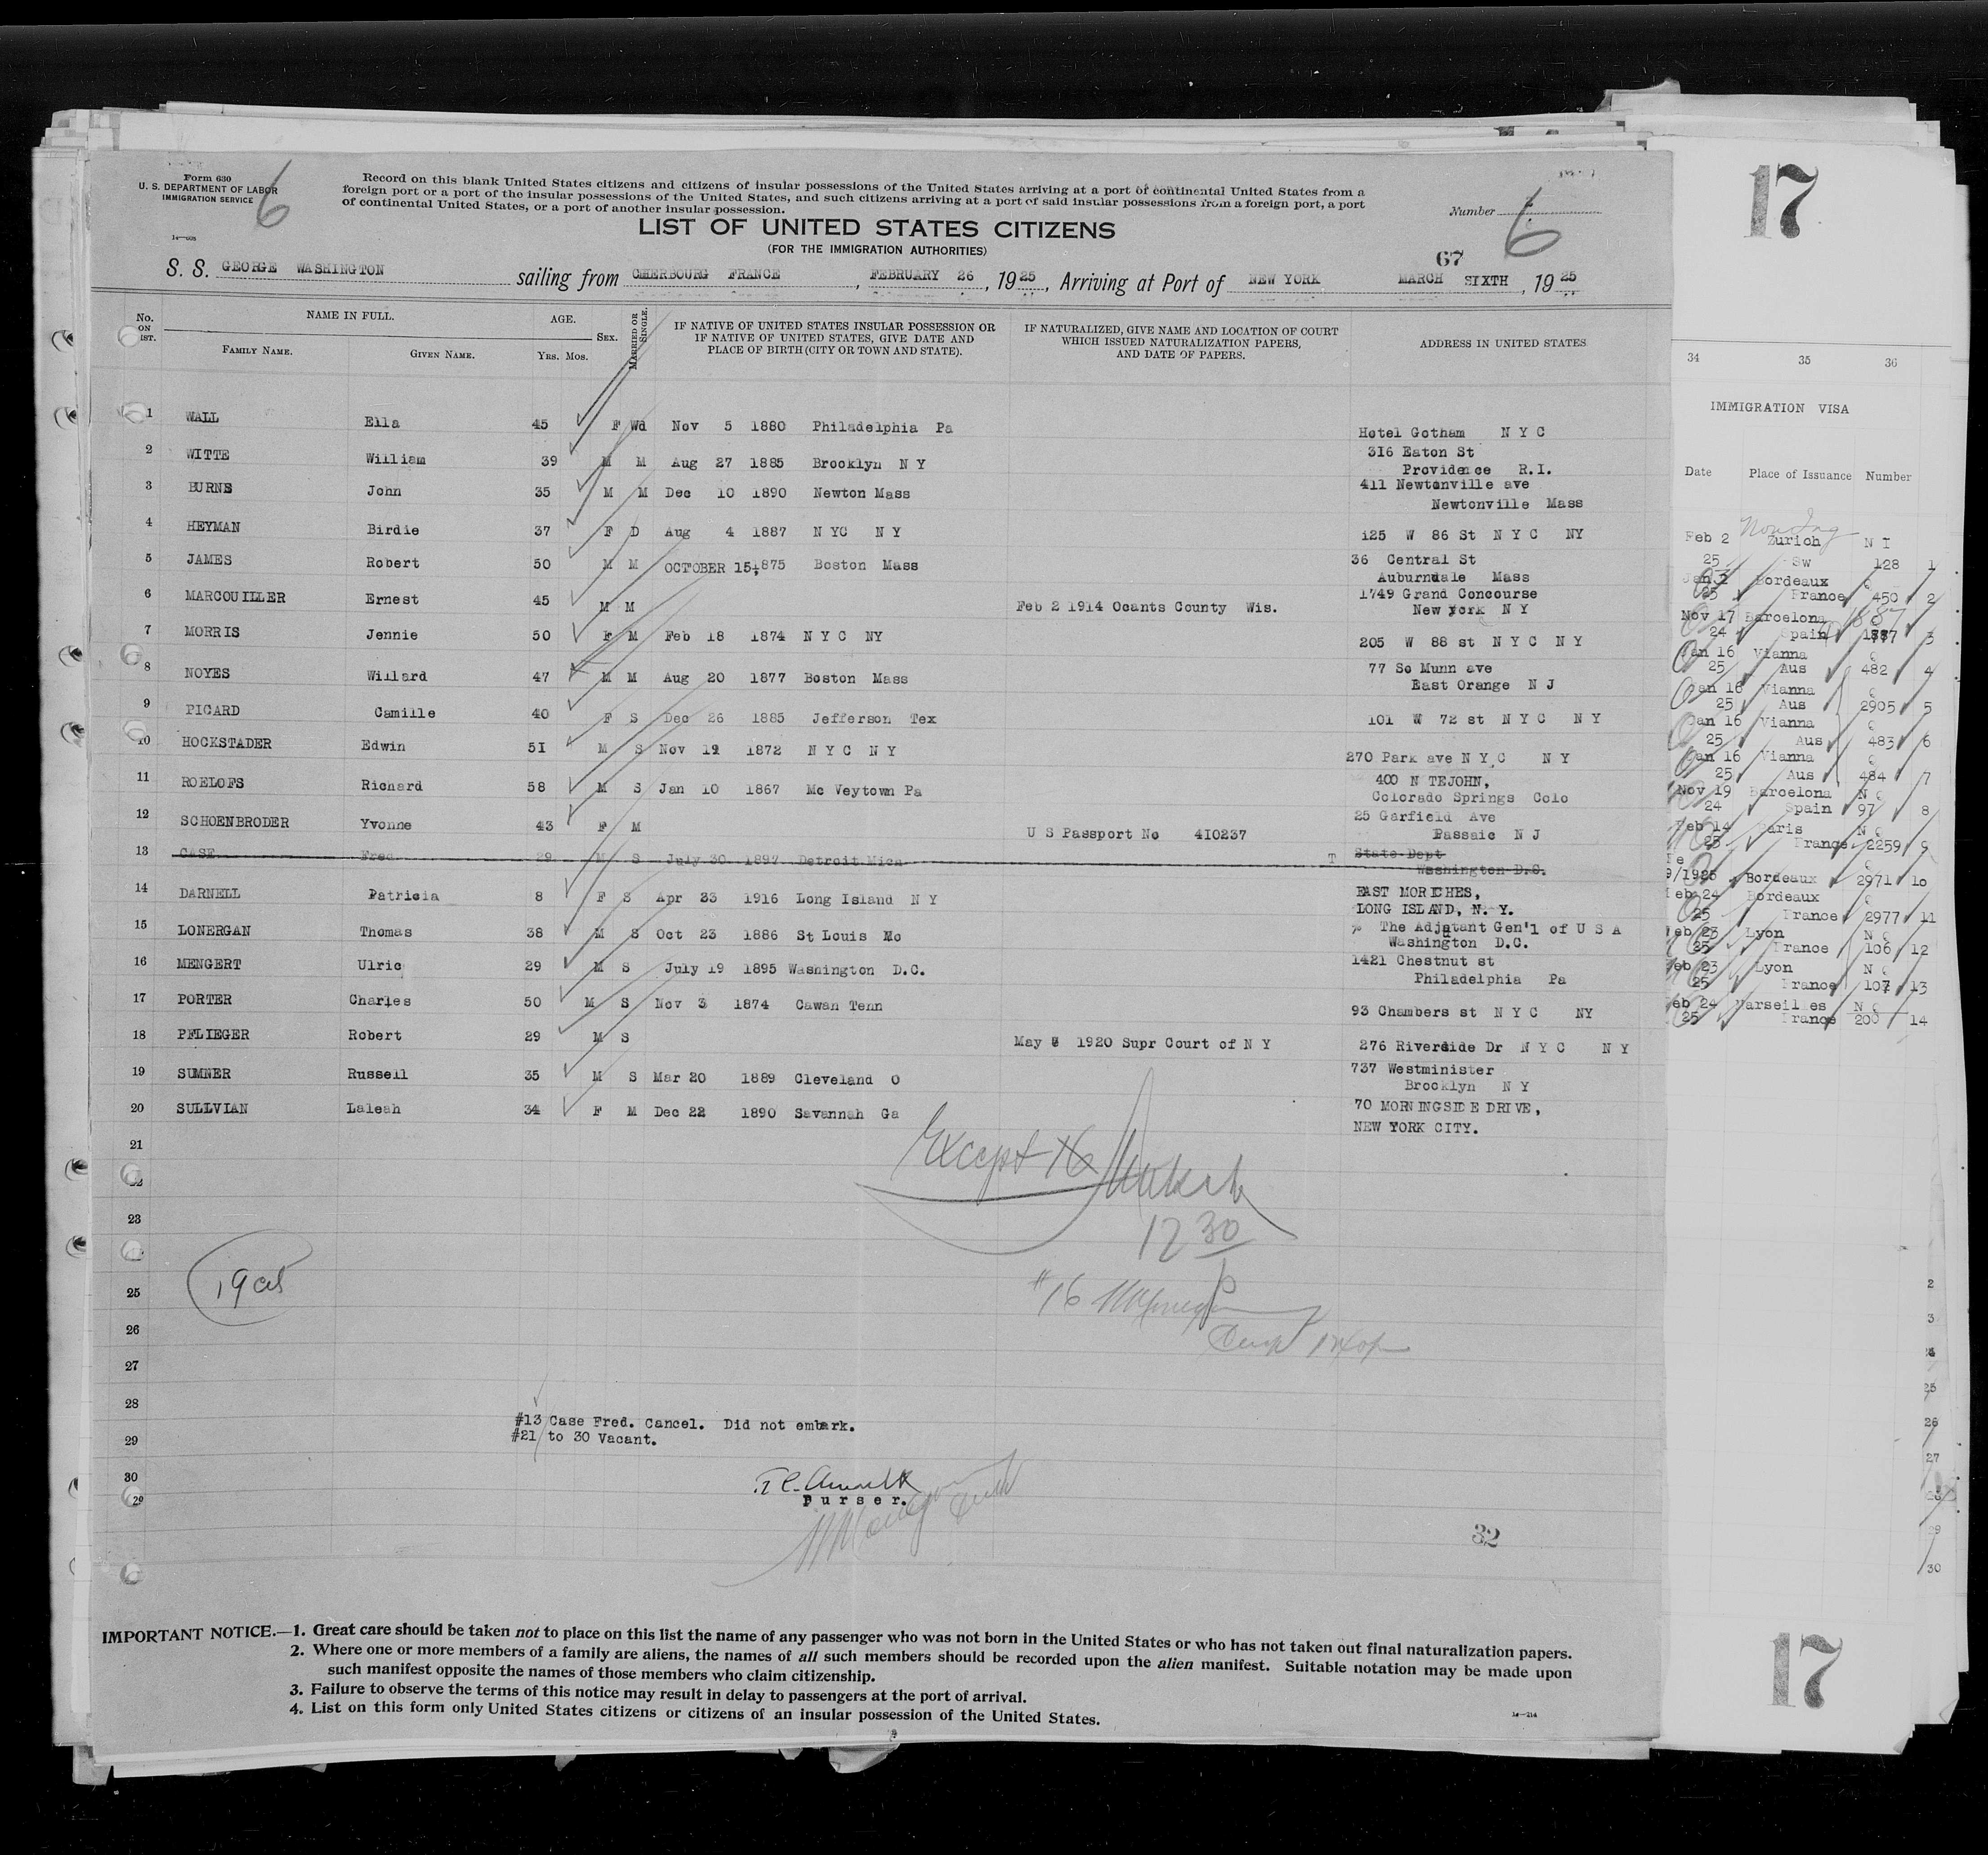 Form 630
U. S. DEPARTMENT OF LABOR
IMMIGRATION SERVICE
6
Record on this blank United States citizens and citizens of insular possessions of the United States arriving at a port of continental United States from a
foreign port or a port of the insular possessions of the United States, and such citizens arriving at a port of said insular possessions from a foreign port, a port
of continental United States, or a port of another insular possession.
Number 6
LIST OF UNITED STATES CITIZENS
(FOR THE IMMIGRATION AUTHORITIES)
67
S. S. GEORGE WASHINGTON sailing from CHERBOURG FRANCE, FEBRUARY 26, 1925, Arriving at Port of NEW YORK MARCH SIXTH, 1925
No. ON LIST. NAME IN FULL. AGE. SEX. MARRIED OR SINGLE. IF NATIVE OF UNITED STATES INSULAR POSSESSION OR IF NATIVE OF UNITED STATES, GIVE DATE AND PLACE OF BIRTH (CITY OR TOWN AND STATE). IF NATURALIZED, GIVE NAME AND LOCATION OF COURT WHICH ISSUED NATURALIZATION PAPERS, AND DATE OF PAPERS. ADDRESS IN UNITED STATES
FAMILY NAME. GIVEN NAME. YRS. MOS.
1 WALL Ella 45 F Wd Nov 5 1880 Philadelphia Pa Hotel Gotham N Y C
2 WITTE William 39 M M Aug 27 1885 Brooklyn N Y 316 Eaton St
Providence R.I.
3 BURNS John 35 M M Dec 10 1890 Newton Mass 411 Newtonville ave
Newtonville Mass
4 HEYMAN Birdie 37 F D Aug 4 1887 N YC N Y 125 W 86 St N Y C NY
5 JAMES Robert 50 M M OCTOBER 15, 1875 Boston Mass 36 Central St
Auburndale Mass
6 MARCOUILLER Ernest 45 M M Feb 2 1914 Ocants County Wis. 1749 Grand Concourse
New York N Y
7 MORRIS Jennie 50 F M Feb 18 1874 N Y C NY 205 W 88 st N Y C N Y
8 NOYES Willard 47 M M Aug 20 1877 Boston Mass 77 So Munn ave
East Orange N J
9 PICARD Camille 40 F S Dec 26 1885 Jefferson Tex 101 W 72 st N Y C N Y
10 HOCKSTADER Edwin 51 M S Nov 19 1872 N Y C N Y 270 Park ave N Y C N Y
11 ROELOFS Richard 58 M S Jan 10 1867 Mc Veytown Pa 400 N TEJOHN,
Colorado Springs Colo
12 SCHOENBRODER Yvonne 43 F M U S Passport No 410237 25 Garfield Ave
Passaic N J
13 CASE Fred 29 M S July 30 1897 Detroit Mich T State Dept
Washington D.C.
14 DARNELL Patricia 8 F S Apr 23 1916 Long Island N Y EAST MORICHES,
LONG ISLAND, N. Y.
15 LONERGAN Thomas 38 M S Oct 23 1886 St Louis Mo The Adjutant Gen'l of U S A
Washington D.C.
16 MENGERT Ulric 29 M S July 19 1895 Washington D.C. 1421 Chestnut st
Philadelphia Pa
17 PORTER Charles 50 M S Nov 3 1874 Cawan Tenn 93 Chambers st N Y C NY
18 PFLIEGER Robert 29 M S May 1920 Supr Court of N Y 276 Riverside Dr N Y C N Y
19 SUMNER Russell 35 M S Mar 20 1889 Cleveland O 737 Westminister
Brooklyn N Y
20 SULLVIAN Laleah 34 F M Dec 22 1890 Savannah Ga 70 MORNINGSIDE DRIVE,
NEW YORK CITY.
21
Except 16
23
12 30
p
25
#16
26
27
28
29
30
#13 Case Fred. Cancel. Did not embark.
#21 to 30 Vacant.
Purser.
32
IMPORTANT NOTICE.—1. Great care should be taken not to place on this list the name of any passenger who was not born in the United States or who has not taken out final naturalization papers.
2. Where one or more members of a family are aliens, the names of all such members should be recorded upon the alien manifest. Suitable notation may be made upon
such manifest opposite the names of those members who claim citizenship.
3. Failure to observe the terms of this notice may result in delay to passengers at the port of arrival.
4. List on this form only United States citizens or citizens of an insular possession of the United States.
14—214
17
34 35 36
IMMIGRATION VISA
Date Place of Issuance Number
Feb 2 Zurich N I
25 Sw 128 1
Bordeaux
25 France 450 2
Nov 17 Barcelona
24 Spain 3
Jan 16 Vianna
25 Aus 482 4
Jan 16 Vianna
25 Aus 2905 5
Jan 16 Vianna
25 Aus 483 6
Jan 16 Vianna
25 Aus 484 7
Nov 19 Barcelona
24 Spain 97 8
Feb 14 Paris
25 France 2259 9
9/1925 Bordeaux 2971 10
Feb 24 Bordeaux
25 France 2977 11
Feb 23 Lyon
25 France 106 12
Feb 23 Lyon
25 France 107 13
Feb 24 Marseilles
25 France 200 14
25
26
27
29
30
17